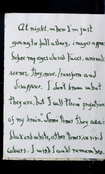 At night, when I'm just
going to fall asleep, images open
before my eyes closed. Faces, and
scenes. They move, transform and
disappear. I don't know what
they are, but I call them
of my brain. Some times they are
black and white, other times, in vivid
colours. I wish I could remember.